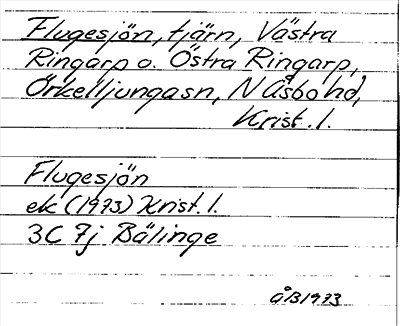 Flugesjön, tjärn, Västra
Ringarp o. Östra Ringarp,
Örkelljungasn, N Åsbo hd,
Krist. l.
Flugesjön
ek (1973) Krist. l.
3C 7j Bälinge
ÅB1973